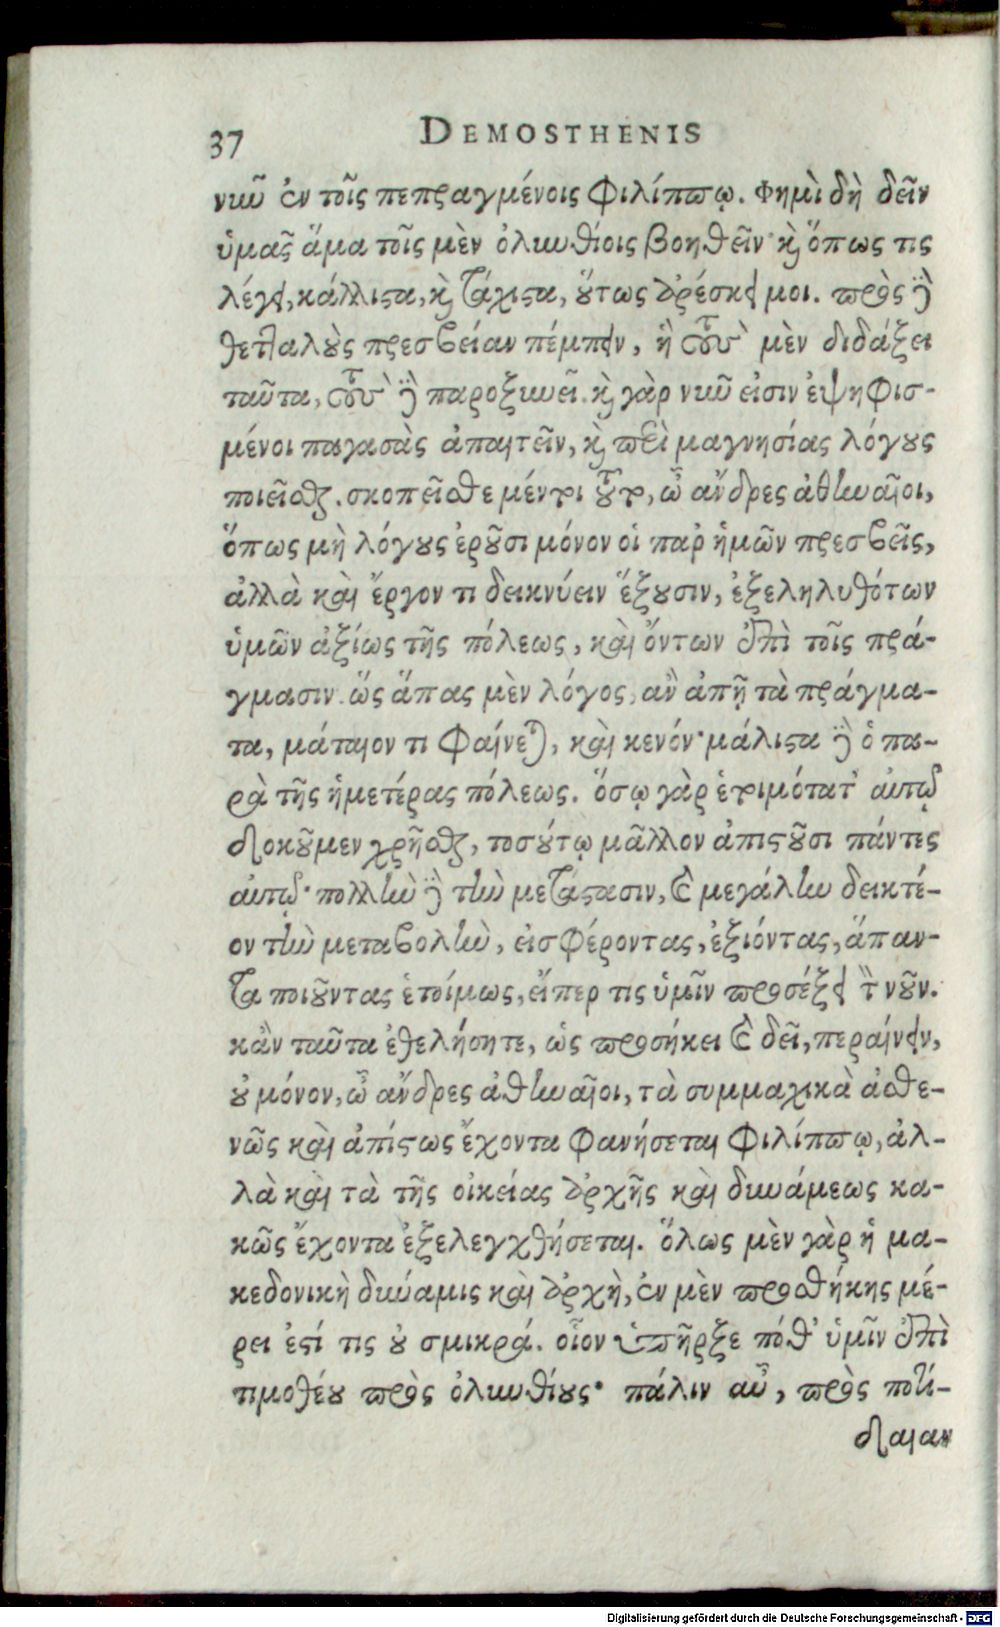 37 DEMOSTHENIS
νιῦ ἐν τοῖς πεπραγμένοις Φιλίππῳ. Φημὶ δὴ δεῖν
ὑμᾶς ἅμα τοῖς μὲν ὀλυνθίοις βοηθεῖν· καὶ ὅπως τις
λέγει, κάλλιστα, καὶ τάχιστα, οὕτως ἀρέσκει μοι. πρὸς δὲ
θετταλοὺς πρεσβείαν πέμπειν, ἣ τοὺς μὲν διδάξει
ταῦτα, τοὺς δὲ παροξυνεῖ. καὶ γὰρ νῦν εἰσιν ἐψηφισ-
μένοι παγασὰς ἀπαιτεῖν, καὶ περὶ μαγνησίας λόγους
ποιεῖσθαι. σκοπεῖσθε μέντοι τοῦτο, ὦ ἄνδρες ἀθηναῖοι,
ὅπως μὴ λόγους ἐροῦσι μόνον οἱ παρ' ἡμῶν πρεσβεῖς,
ἀλλὰ καὶ ἔργον τι δεικνύειν ἕξουσιν, ἐξεληλυθότων
ὑμῶν ἀξίως τῆς πόλεως, καὶ ὄντων ἐπὶ τοῖς πρά-
γμασιν. ὡς ἅπας μὲν λόγος, ἂν ἀπῇ τὰ πράγμα-
τα, μάταιον τι φαίνεται, καὶ κενόν· μάλιστα δὲ ὁ πα-
ρὰ τῆς ἡμετέρας πόλεως. ὅσῳ γὰρ ἑτοιμότατ' αὐτῷ
δοκοῦμεν χρῆσθαι, τοσούτῳ μᾶλλον ἀπιστοῦσι πάντες
αὐτῷ· πολλὴν δὲ τὴν μετάστασιν, καὶ μεγάλην δεικτέ-
ον τὴν μεταβολὴν, εἰσφέροντας, ἐξιόντας, ἅπαν-
τα ποιοῦντας ἑτοίμως, εἴπερ τις ὑμῖν προσέξει τὸν νοῦν.
κἂν ταῦτα ἐθελήσητε, ὡς προσήκει καὶ δεῖ, περαίνειν,
οὐ μόνον, ὦ ἄνδρες ἀθηναῖοι, τὰ συμμαχικὰ ἀσθε-
νῶς καὶ ἀπίστως ἔχοντα φανήσεται Φιλίππῳ, ἀλ-
λὰ καὶ τὰ τῆς οἰκείας ἀρχῆς καὶ δυνάμεως κα-
κῶς ἔχοντα ἐξελεγχθήσεται. ὅλως μὲν γὰρ ἡ μα-
κεδονικὴ δύναμις καὶ ἀρχὴ, ἐν μὲν προσθήκης μέ-
ρει ἐστί τις οὐ σμικρά. οἷον ὑπῆρξε πόθ' ὑμῖν ἐπὶ
τιμοθέου πρὸς ὀλυνθίους· πάλιν αὖ, πρὸς ποτί-
δαιαν
Digitalisierung gefördert durch die Deutsche Forschungsgemeinschaft - DFG